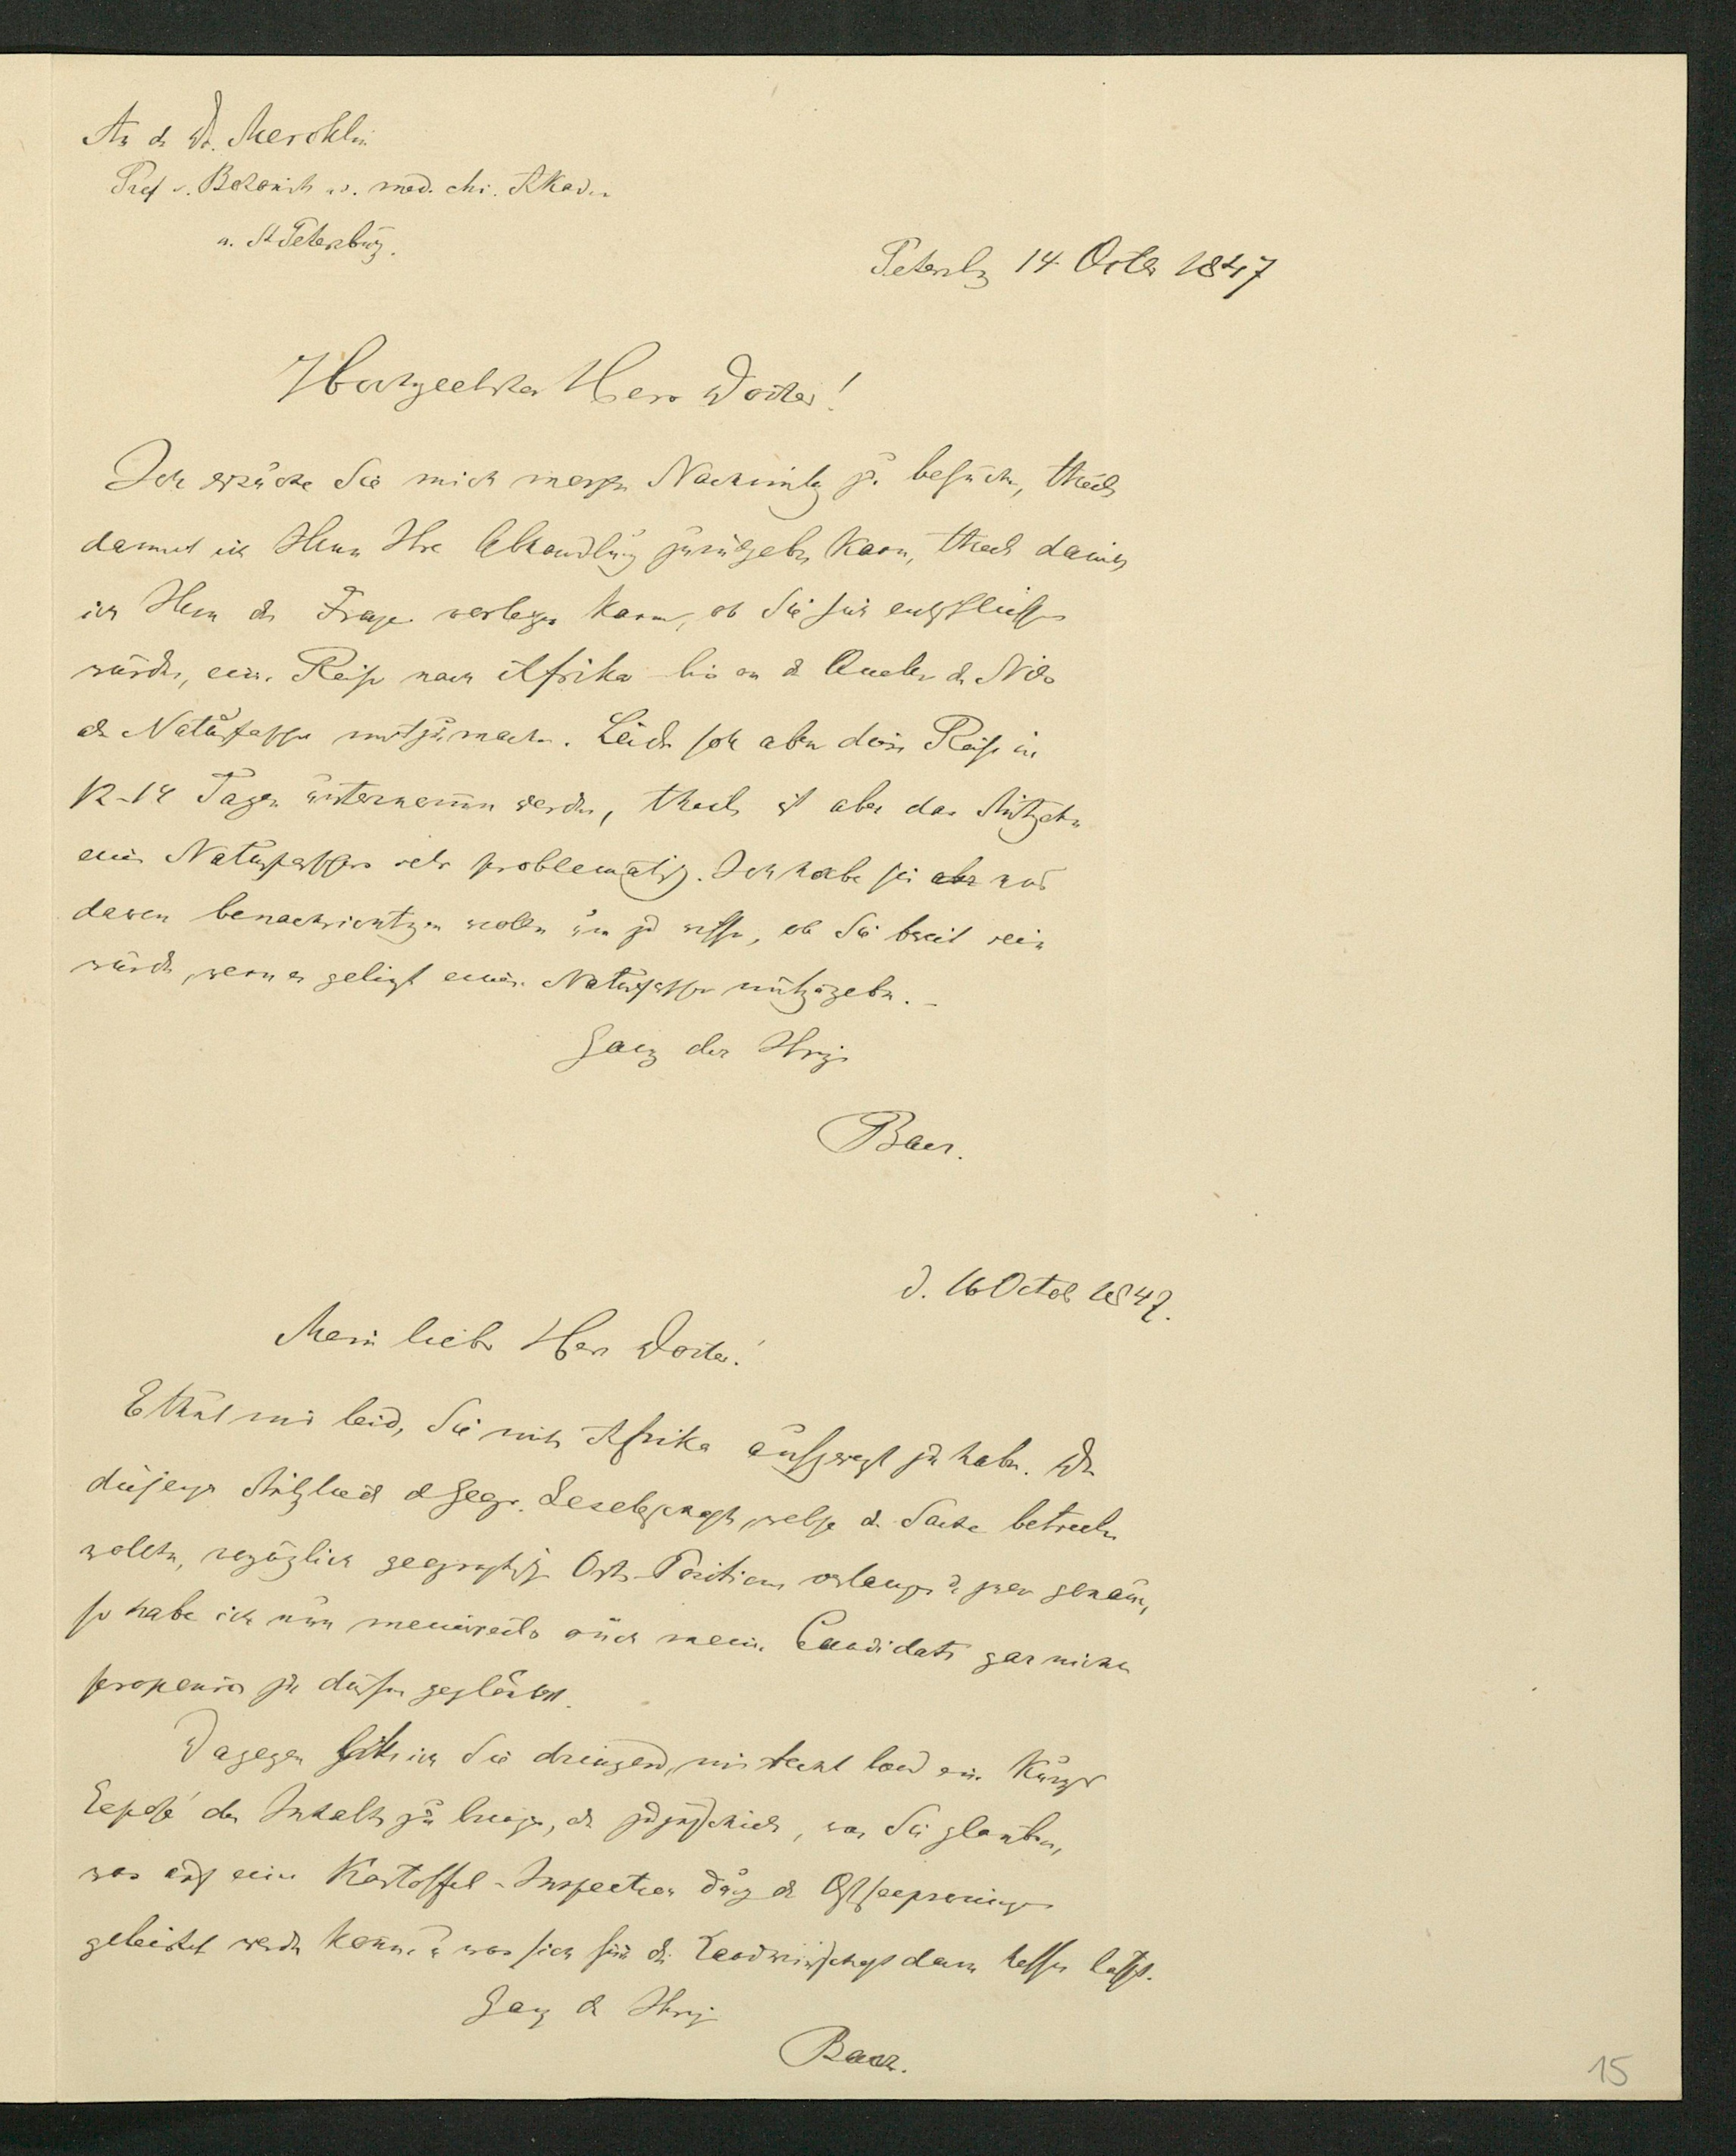 An d. Dr. Mercklin
Prof d. Botanik d. med. chi. Akad.
u. St Petersburg.
Petersbg 14 Octbr 1847
Hochgeehrter Herr Doctor!
Ich ersuche Sie mich morgen Nachmittg zu besuchen, theils
damit ich Ihnen Ihre Abhandlung zurückgeben kann, theils damit
ich Ihnen die Frage vorlegen kann, ob Sie sich entschliessen
würden, eine Reise nach Afrika bis an d Quellen des Nils
als Naturforscher mitzumachen. Leider soll aber diese Reise in
12-14 Tagen unternommen werden, theils ist aber das Mitgehn
eines Naturforschers sehr problematisch. Ich habe Sie aber nur
davon benachrichtigen wollen um zu wissen, ob Sie bereit sein
würden, wenn es gelingt einen Naturforscher mitzugeben. –
Ganz der Ihrige
Baer.
d. 16 Octob 1847.
Mein lieber Herr Doctor!
Es thut mir leid, Sie mit Afrika aufgeregt zu haben. Da
diejenigen Mitglieder d Geogr. Gesellschaft, welche die Sache betreiben
wollten, vorzüglich geographische Orts-Positionen verlangen u zwar genaue,
so habe ich nun meinerseits auch meine Candidaten gar nicht
proponiren zu dürfen geglaubt.
Dagegen bitte ich Sie dringend, mir recht bald ein kurzes
Exposé des Inhalts zu bringen, oder zuzuschicken, was Sie glauben,
was auf einer Kartoffel-Inspection durch die Ostseeprovinzen
geleistet werden könne u was sich für die Landwirthschaft davon hoffen lässt.
Ganz d Ihrige
Baer.
15